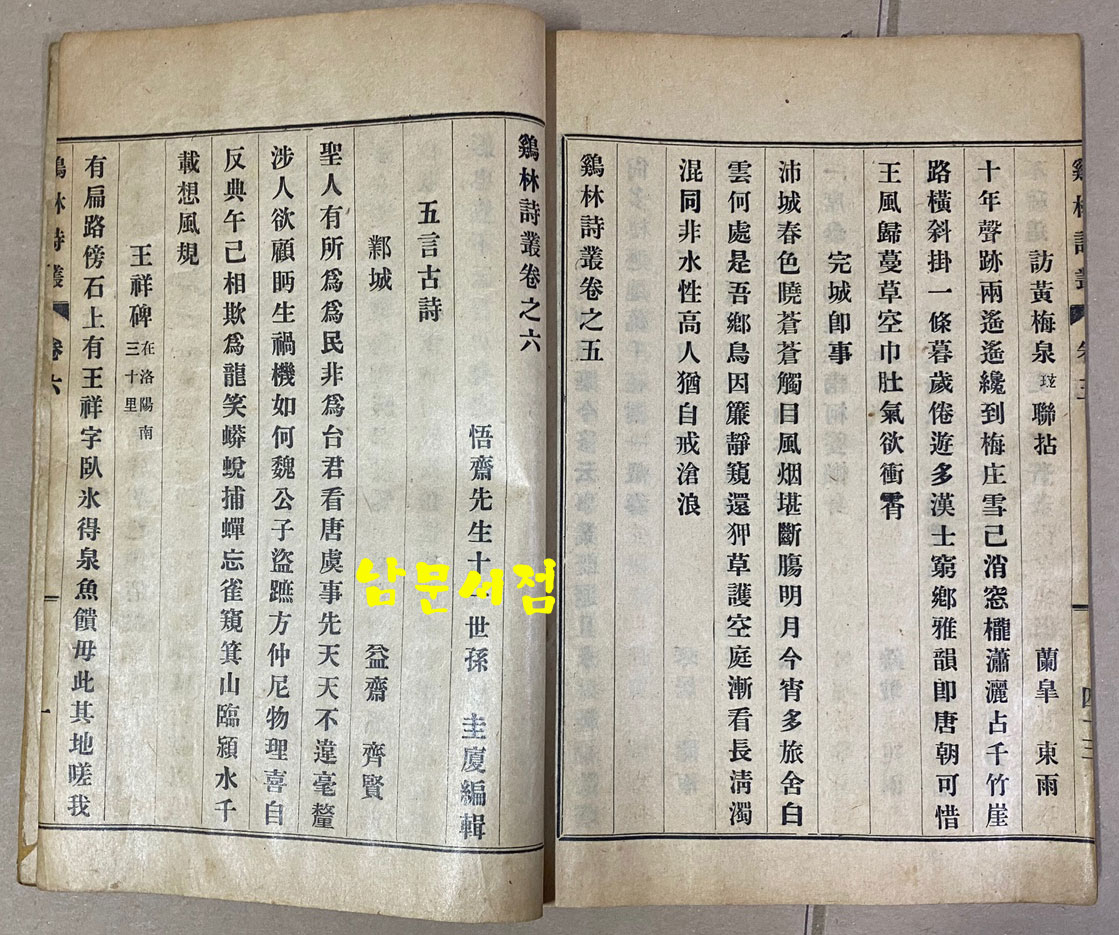 訪黃梅泉玹聯拈 蘭皐 東雨
十年聲跡兩遙遙纔到梅庄雪已消窓櫳瀟灑占千竹崖
路橫斜掛一條暮歲倦遊多漢士窮鄉雅韻卽唐朝可惜
王風歸蔓草空巾肚氣欲衝霄
完城卽事
沛城春色曉蒼蒼觸目風烟堪斷膓明月今宵多旅舍白
雲何處是吾鄉鳥因簾靜窺還狎草護空庭漸看長淸濁
混同非水性高人猶自戒滄浪
鷄林詩叢卷之五
鷄林詩叢卷之六
悟齋先生十 世孫 圭廈編輯
五言古詩
鄴城 益齋 齊賢
聖人有所爲爲民非爲台君看唐虞事先天天不違毫釐
涉人欲顧眄生禍機如何魏公子盜蹠方仲尼物理喜自
反典午已相欺爲龍笑蟒蛻捕蟬忘雀窺箕山臨潁水千
載想風規
王祥碑 在洛陽南三十里
有扁路傍石上有王祥字臥氷得泉魚饋母此其地嗟我
鷄林詩叢 卷六 一
남문서점